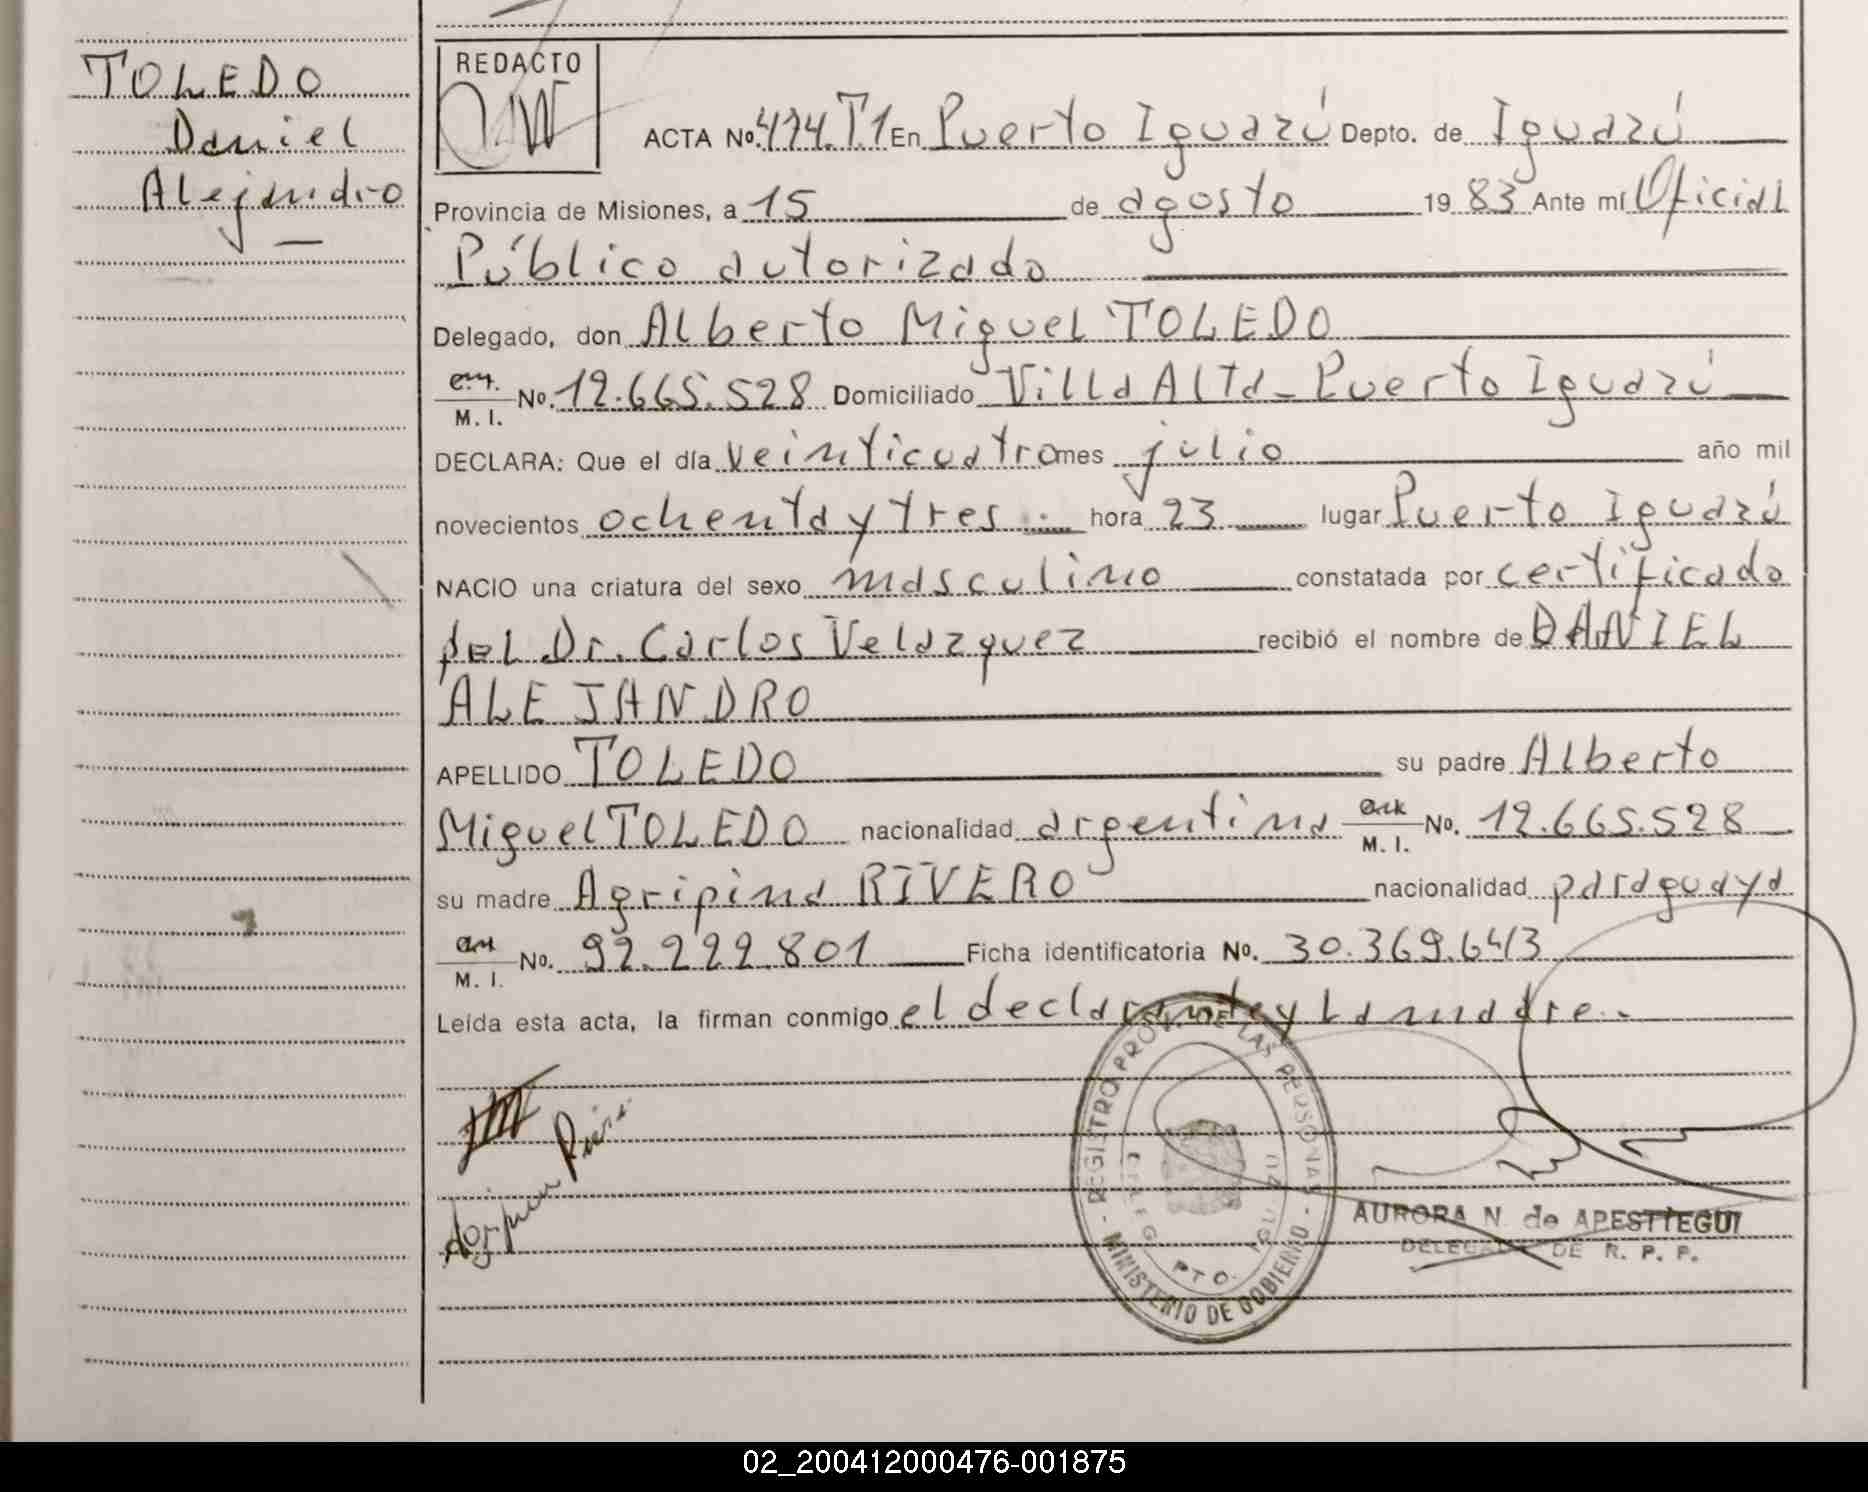 TOLEDO
Daniel
Alejandro
REDACTO
ACTA No. 474.T.1 En Puerto Iguazú Depto. de Iguazú
Provincia de Misiones, a 15 de agosto 1983 Ante mí Oficial
Público autorizado
Delegado, don Alberto Miguel TOLEDO
M. I. No. 12.665.528 Domiciliado Villa Alta - Puerto Iguazú
DECLARA: Que el día veinticuatro mes julio año mil
novecientos ochenta y tres hora 23 lugar Puerto Iguazú
NACIO una criatura del sexo masculino constatada por certificado
del Dr. Carlos Velazquez recibió el nombre de DANIEL
ALEJANDRO
APELLIDO TOLEDO su padre Alberto
Miguel TOLEDO nacionalidad argentina M. I. No. 12.665.528
su madre Agripina RIVERO nacionalidad paraguaya
M. I. No. 92.222.801 Ficha identificatoria No. 30.369.643
Leída esta acta, la firman conmigo el declarante y la madre.-
REGISTRO PROV. DE LAS PERSONAS
MINISTERIO DE GOBIERNO
PTO.
AURORA N. de APESTEGUI
DELEGADA DE R. P. P.
02_200412000476-001875